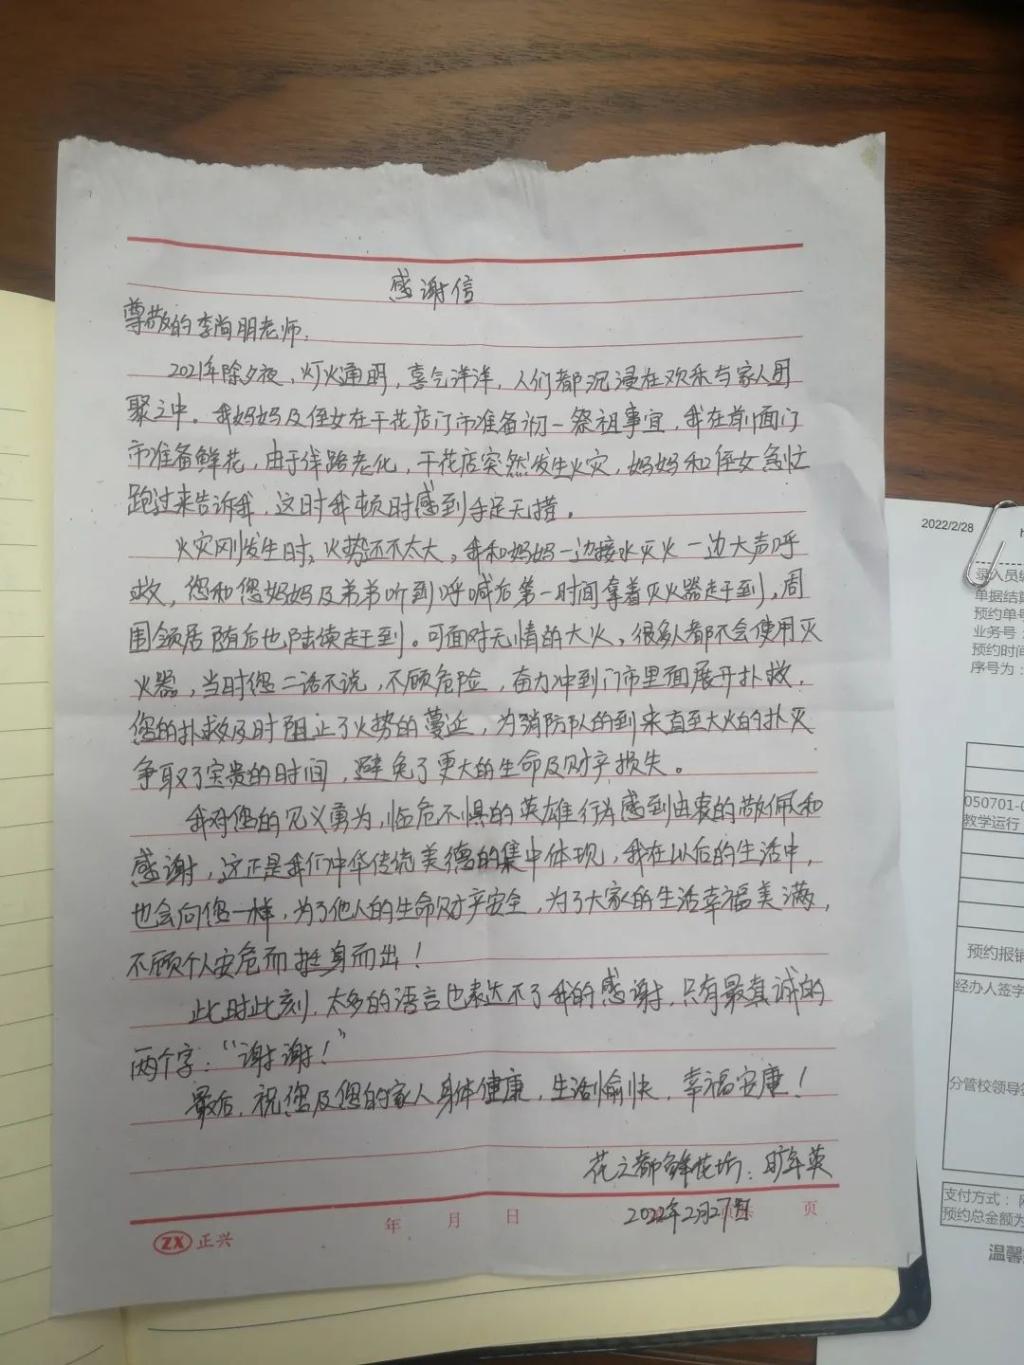 感谢信
尊敬的李尚明老师,
2021年除夕夜,灯火通明,喜气洋洋,人们都沉浸在欢乐与家人团
聚之中。我妈妈及侄女在干花店门市准备初一祭祖事宜,我在前面门
市准备鲜花,由于线路老化,干花店突然发生火灾,妈妈和侄女急忙
跑过来告诉我,这时我顿时感到手足无措。
火灾刚发生时,火势还不太大,我和妈妈一边接水灭火一边大声呼
救,您和您妈妈及弟弟听到呼喊后第一时间拿着灭火器赶到,周
围邻居随后也陆续赶到。可面对无情的大火,很多人都不会使用灭
火器,当时您二话不说,不顾危险,奋力冲到门市里面展开扑救,
您的扑救及时阻止了火势的蔓延,为消防队的到来直至大火的扑灭
争取了宝贵的时间,避免了更大的生命及财产损失。
我对您的见义勇为,临危不惧的英雄行为感到由衷的敬佩和
感谢,这正是我们中华传统美德的集中体现,我在以后的生活中,
也会向您一样,为了他人的生命财产安全,为了大家的生活幸福美满,
不顾个人安危而挺身而出!
此时此刻,太多的语言也表达不了我的感谢,只有最真诚的
两个字:“谢谢!”
最后,祝您及您的家人身体健康,生活愉快,幸福安康!
花之都鲜花坊:年英
2022年2月27日
年 月 日 页
ZX 正兴
2022/2/28
录入员
单据结算
预约单号
业务号
预约时间
序号为:
050701-0
教学运行
预约报销
经办人签字
分管校领导
支付方式:
预约总金额为
温馨